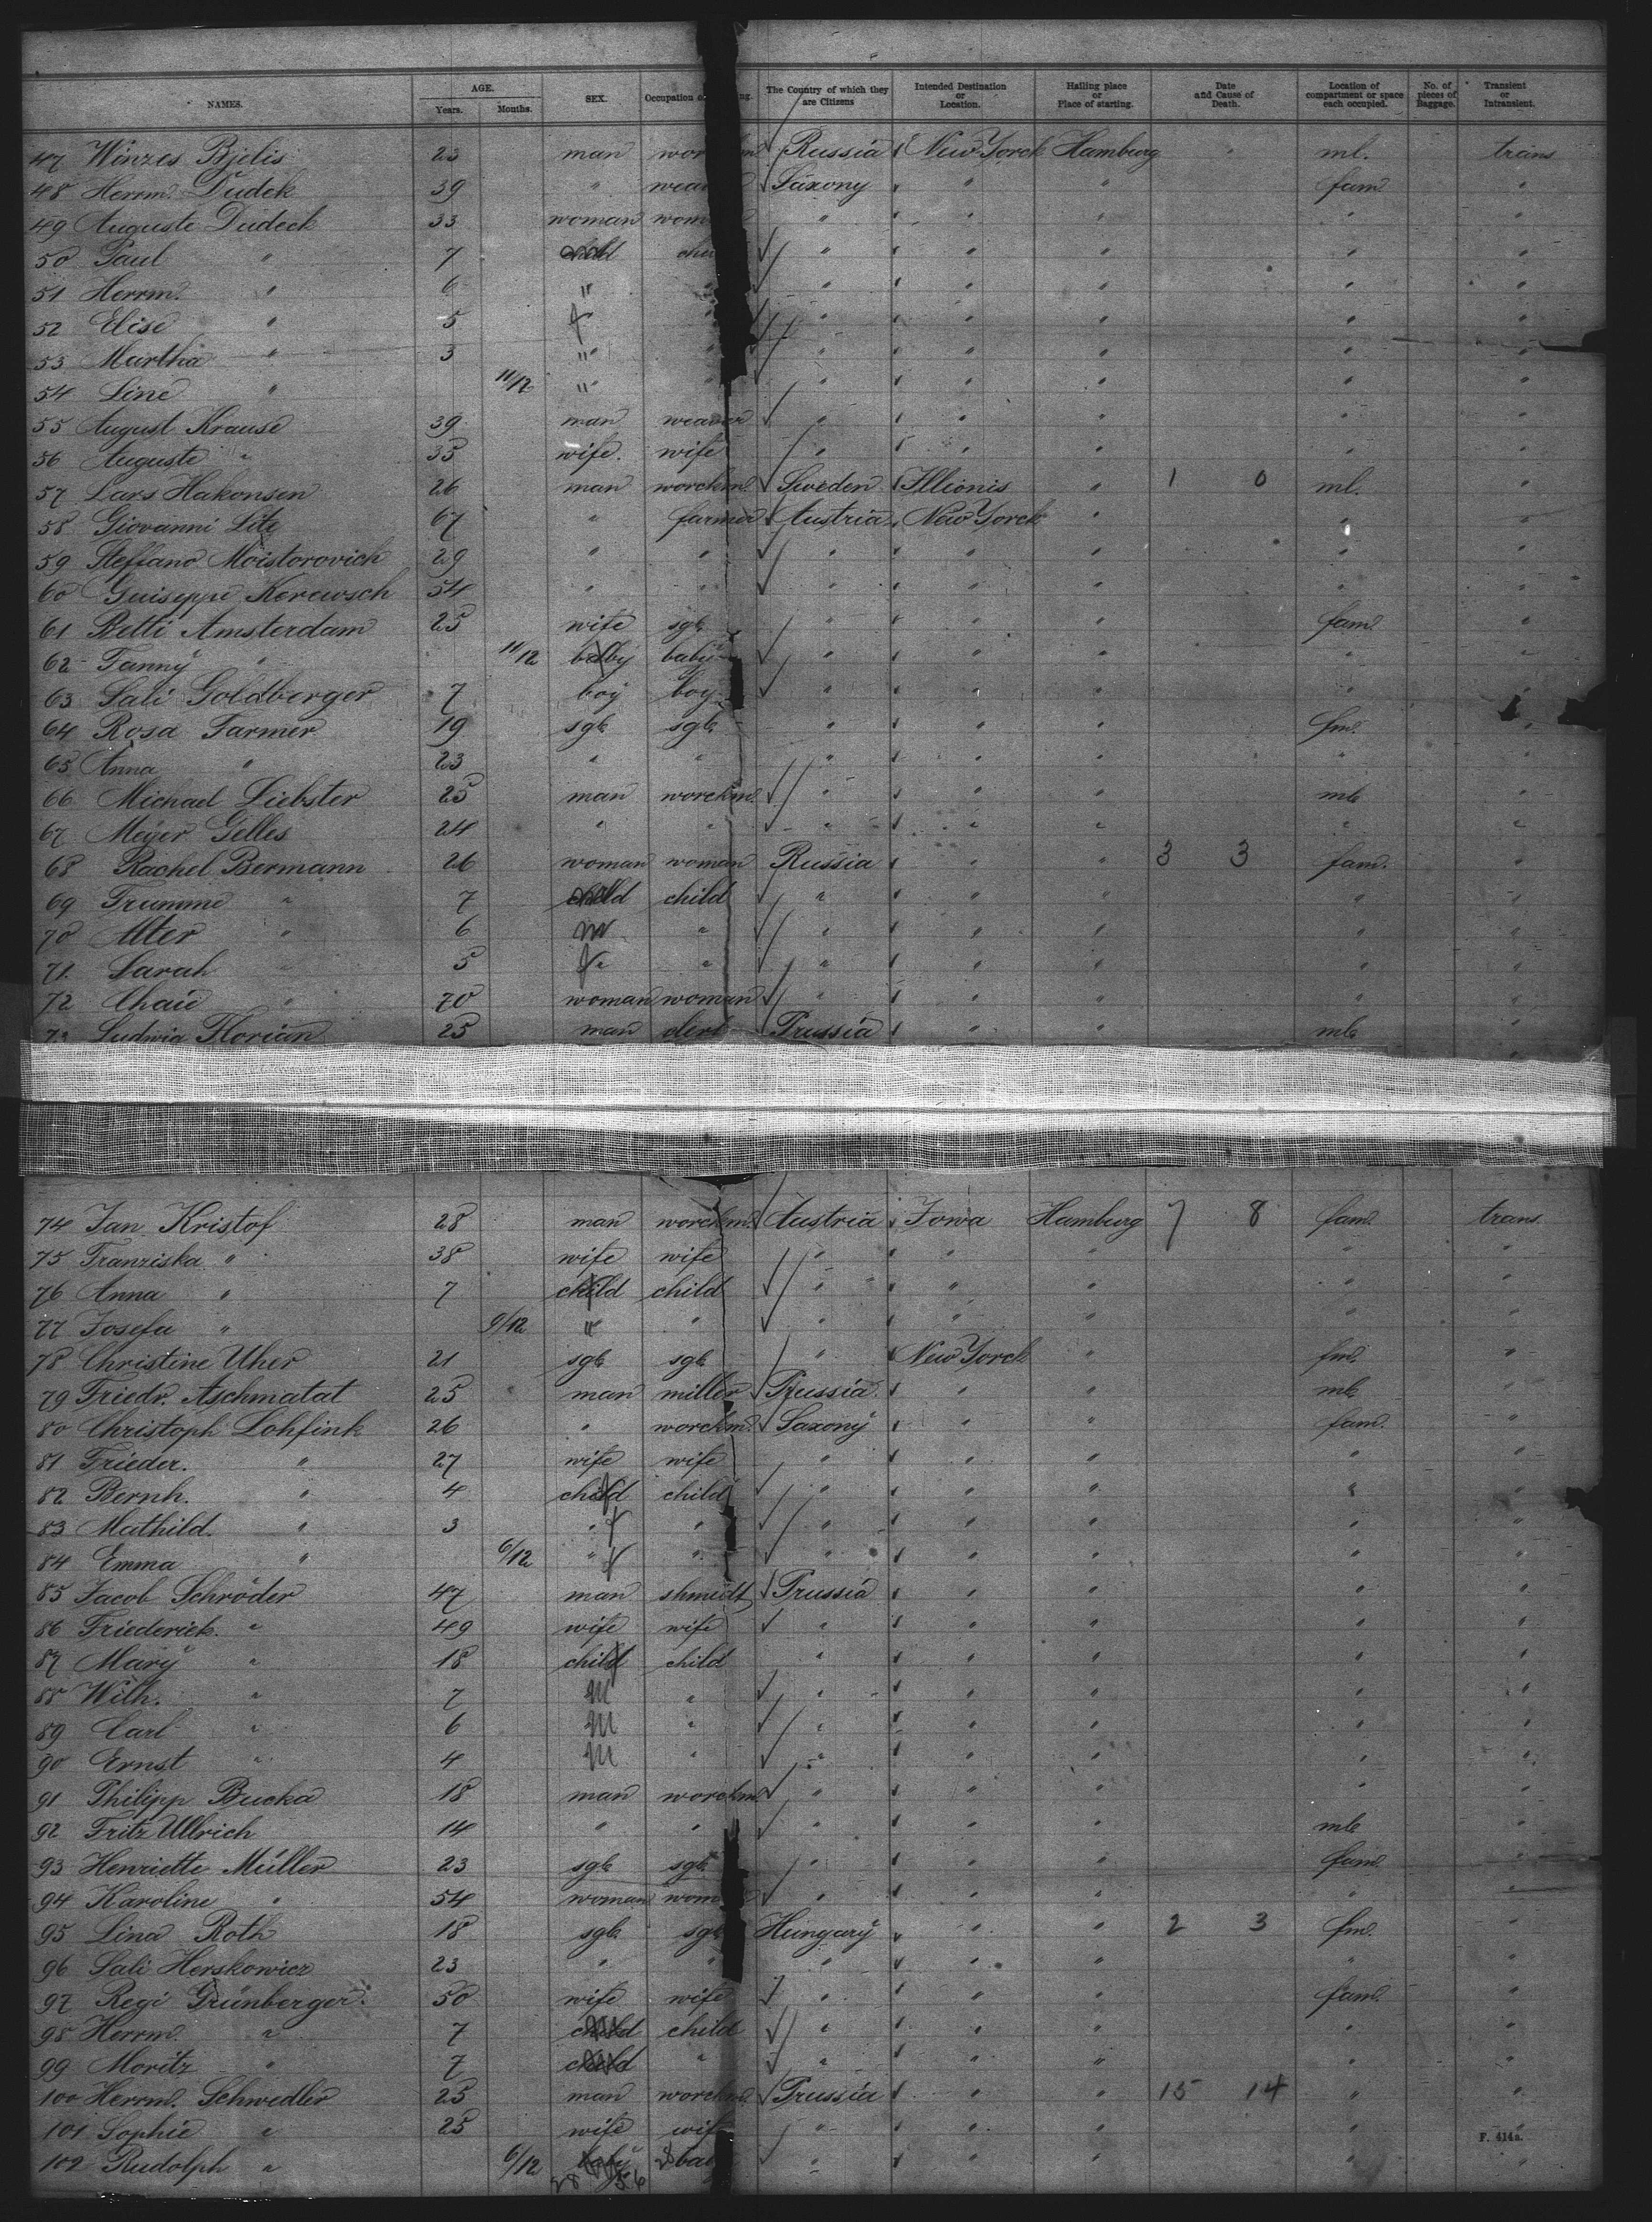 NAMES. AGE. Years. Months. SEX. Occupation The Country of which they are Citizens Intended Destination or Location. Hailing place or Place of starting. Date and Cause of Death. Location of compartment or space each occupied. No. of pieces of Baggage. Transient or Intransient.
47 Winzes Bjelis 23 man wor Russia New Yorck Hamburg ml. trans
48 Herrm. Dudek 39 " wea Saxony " " fam "
49 Auguste Dudeck 33 woman wom " " " " "
50 Paul " 7 child chi " " " " "
51 Herrm. " 6 " " " " " " "
52 Elise " 5 f " " " " " "
53 Martha " 3 " " " " " " "
54 Line " 11/12 " " " " " " "
55 August Krause 39 man weaver " " " " "
56 Auguste " 35 wife. wife " " " " "
57 Lars Hakonsen 26 man workm. Sweden Illionis " 1 0 ml. "
58 Giovanni Lite 67 " farmer Austria New Yorck " " "
59 Steffano Moistorovich 29 " " " " " " "
60 Guiseppe Kerewsch 54 " " " " " " "
61 Betti Amsterdam 25 wife sgl. " " " fam. "
62 Fanny " 11/12 baby baby " " " " "
63 Sali Goldberger 7 boy boy " " " " "
64 Rosa Farmer 19 sgl. sgl. " " " fm. "
65 Anna " 23 " " " " " " "
66 Michael Liebster 25 man worckm. " " " ml. "
67 Meyer Gelles 24 " " " " " " "
68 Rachel Bermann 26 woman woman Russia " " 3 3 fam. "
69 Trumme " 7 child child " " " " "
70 Alter " 6 M " " " " " "
71. Sarah " 5 f " " " " " " "
72 Chaie " 70 woman woman " " " " "
73 Ludwig Florian 25 man clerk Prussia " " ml. "
74 Jan Kristof 28 man worckm. Austria Iowa Hamburg 7 8 fam. trans.
75 Franziska " 38 wife wife " " " " "
76 Anna " 7 child child " " " " "
77 Josefa " 9/12 " " " " " " "
78 Christine Uher 21 sgl. sgl. " New Yorck " fm. "
79 Friedr. Aschmatat 25 man miller Prussia " " ml. "
80 Christoph Lohfink 26 " worckm. Saxony " " fam. "
81 Frieder. " 27 wife wife " " " " "
82 Bernh. " 4 child child " " " " "
83 Mathild. " 3 " f " " " " " "
84 Emma " 6/12 " f " " " " " "
85 Jacob Schröder 47 man shmidt Prussia " " " "
86 Friederick. " 49 wife wife " " " " "
87 Mary " 18 child child " " " " "
88 Wilh. " 7 M " " " " " "
89 Carl " 6 M " " " " " "
90 Ernst " 4 M " " " " " "
91 Philipp Bucka 18 man worckm. " " " " "
92 Fritz Ullrich 14 " " " " " ml. "
93 Henriette Müller 23 sgl. sgl. " " " fam. "
94 Karoline " 54 woman wom " " " " "
95 Lina Roth 18 sgl. sgl. Hungary " " 2 3 fm. "
96 Sali Herskowicz 23 " " " " " " "
97 Regi Grünberger. 50 wife wife " " " fam. "
98 Herrm. " 7 child child " " " " "
99 Moritz " 7 child " " " " " "
100 Herrm. Schwedler 25 man worckm. Prussia " " 15 14 " "
101 Sophie " 25 wife wife " " " " "
F. 414a.
102 Rudolph " 6/12 baby 28 bab " " " " "
28 56